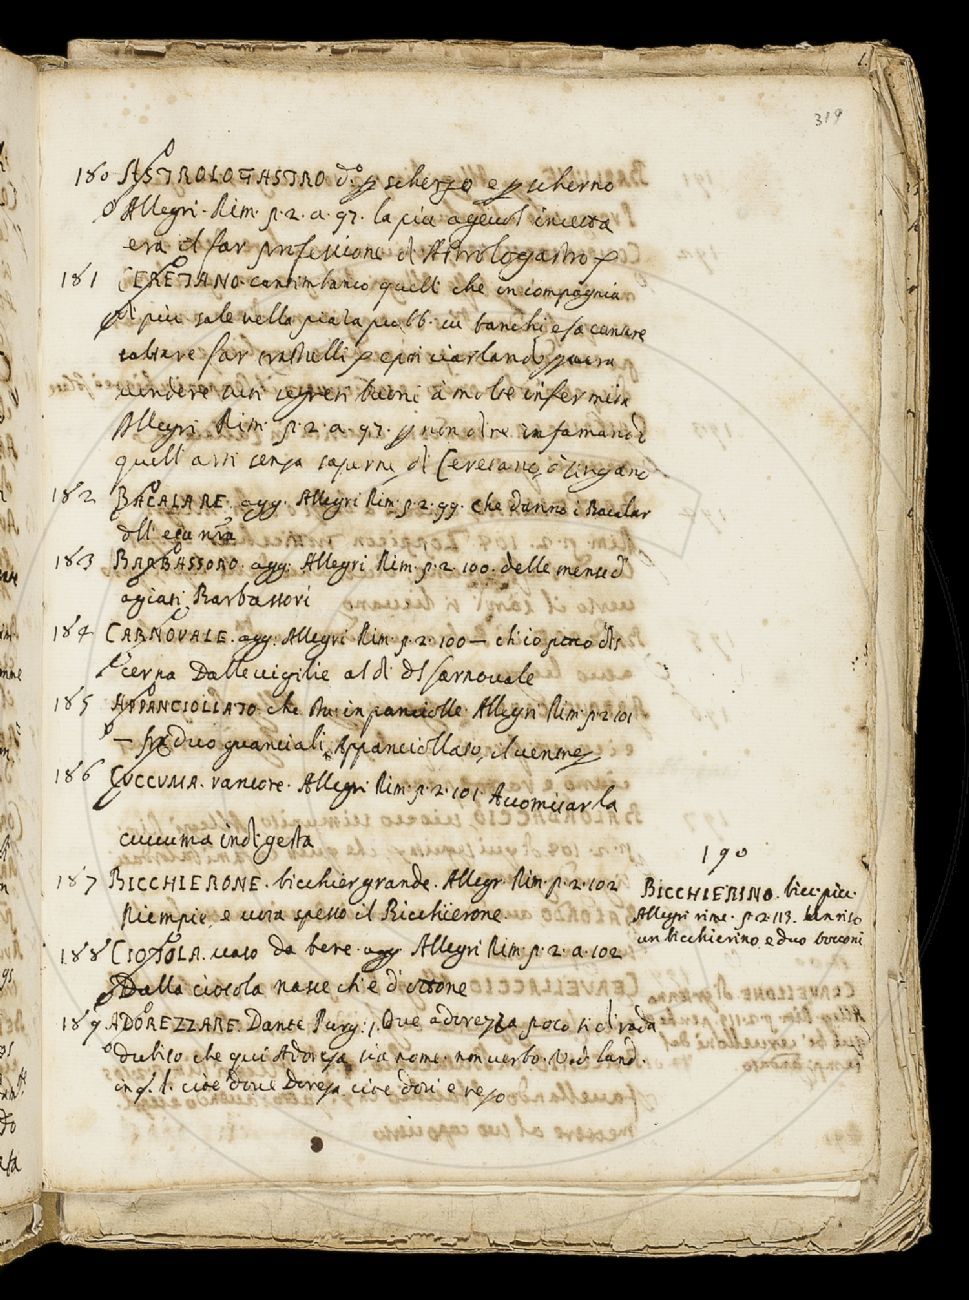 319
180 ASTROLOGASTRO d.º p scherzo e p scherno
Allegri. Rim. p. 2. a. 97. la piu agevol incetta
era il far professione di Astrologastro
181 CERETANO. cantimbanco quelli che in compagnia
di piu sale nella piaza pubb. in banchi e fa cantare
saltare far trastulli e poi ciarlando
vendere suoi segreti buoni à molte infermità
Allegri Rim. p. 2. a. 97. p non dire infamando
quell arti senza saperne di Ceretano, ò zingano
182 BACALARE. agg. Allegri Rim. p. 2. 99. che danno i Bacalar
183 BARBASSORO. agg. Allegri Rim. p. 2. 100. delle mense di
agiati Barbassori
184 CARNOVALE. agg. Allegri Rim. p. 2. 100 — ch'io poco dis
cerna Dalle vigilie al dì dl Carnovale
185 APPANCIOLLATO che sta in panciolle Allegri Rim. p. 2 101
— fra duo guanciali Appanciollato, il ventre
186 CUCCUMA. rancore. Allegri Rim. p. 2. 101. A vomitar la
cuccuma indigesta
187 BICCHIERONE. bicchier grande. Allegr Rim. p. 2. 102
Riempie, e vota spesso il Bicchierone
188 CIOTOLA. vaso da bere. agg Allegri Rim. p. 2. a. 102
Dalla ciotola nasce ch'è d'ottone
189 ADOREZZARE. Dante Purg. 1. Ove adorezza poco si dirada
dubito che qui Adoreza sia nome non verbo. V. ò land.
in f. l. cioè dove Doreza cioè dov'è rezo
190
BICCHIERINO. bicc. picc.
Allegri rime. p. 2. 113. Un
un bicchierino, e duo bocconi